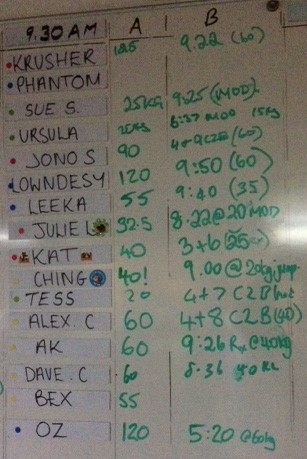 9.30 AM A B
KRUSHER 125 9.22 (60)
PHANTOM
SUE S. 25KG 9:25 (MOD).
URSULA 8:37 MOD 15KG
JONO S 90 (60)
LOWNDESY 120 9:50 (60)
LEEKA 55 9:40 (35)
JULIE L 32.5 8.22@20 MOD
KAT 40 3+6 (25)
CHING 40! 9.00@20kg jump
TESS 20 4+7 C2B
ALEX. C 60 4+8 C2B (40)
AK 60 9:26 Rx @40kg
DAVE. C 60 8.36 40
BEX 55
OZ 120 5:20 @60kg